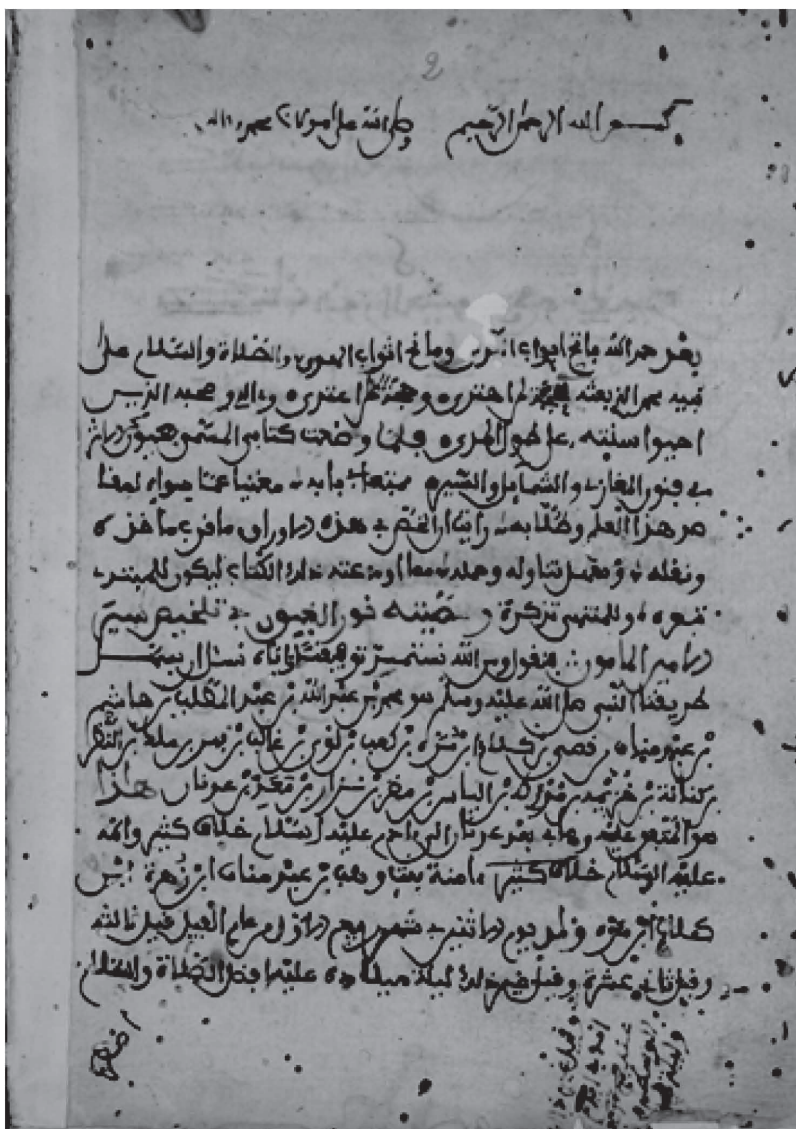 2
بسم الله الرحمن الرحيم وصلى الله على مولانا محمد وآله
بعد حمد الله فاتح أبواب ومانح أثواب والصلاة والسلام على
نبيه محمد الذي بعثه لمن اهتدى وحجة على من اعتدى وءاله وصحبه الذين
أحيوا سنته على طول المدى فلما وضعت كتابي المسمى بعيون الاثر
في فنون المغازي والشمايل والسير ممتعا في بابه مغنيا عما سواه لمن
من هذا العلم وطلابه رأيت أن ألخص في هذه الاوراق ما قرب مأخذه
ونقله وسهل تناوله وحمله مما أودعته ذلك الكتاب ليكون للمبتدي
تبصرة وللمنتهي تذكرة وسميته نور العيون في تلخيص سير
الامين المامون فنقول ومن الله نستمد توفيقنا وإياه نسئل أن يسهل
طريقنا النبي صلى الله عليه وسلم هو محمد بن عبد الله بن عبد المطلب بن هاشم
بن عبد مناف بن قصي بن كلاب ابن مرة بن كعب بن لؤي بن غالب بن فهر بن ملك بن النضر
بن كنانة بن خزيمة بن مدركة بن الياس بن مضر بن نزار بن معد بن عدنان هاذا
هو المتفق عليه وما بعد عدنان إلى ءادم عليه السلام خلاف كثير وأمه
عليه السلام خلاف كثير ءامنة بنت وهب بن عبد مناف ابن زهرة ابن
كلاب بن مرة ولد يوم الاثنين في شهر ربيع الاول من عام الفيل قيل ثالثه
وقيل ثاني عشره وقيل غير ذلك ليلة ميلاده عليه أفضل الصلاة والسلام
وقيل
وليلة